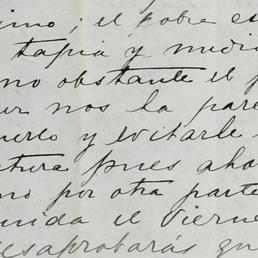 imo; el pobre es
tapia y medi
no obstante el p
ur nos la pare
uerlo y evitarle
ctura pues aho
mo por otra parte
nida el Vierne
esaprobarás qu